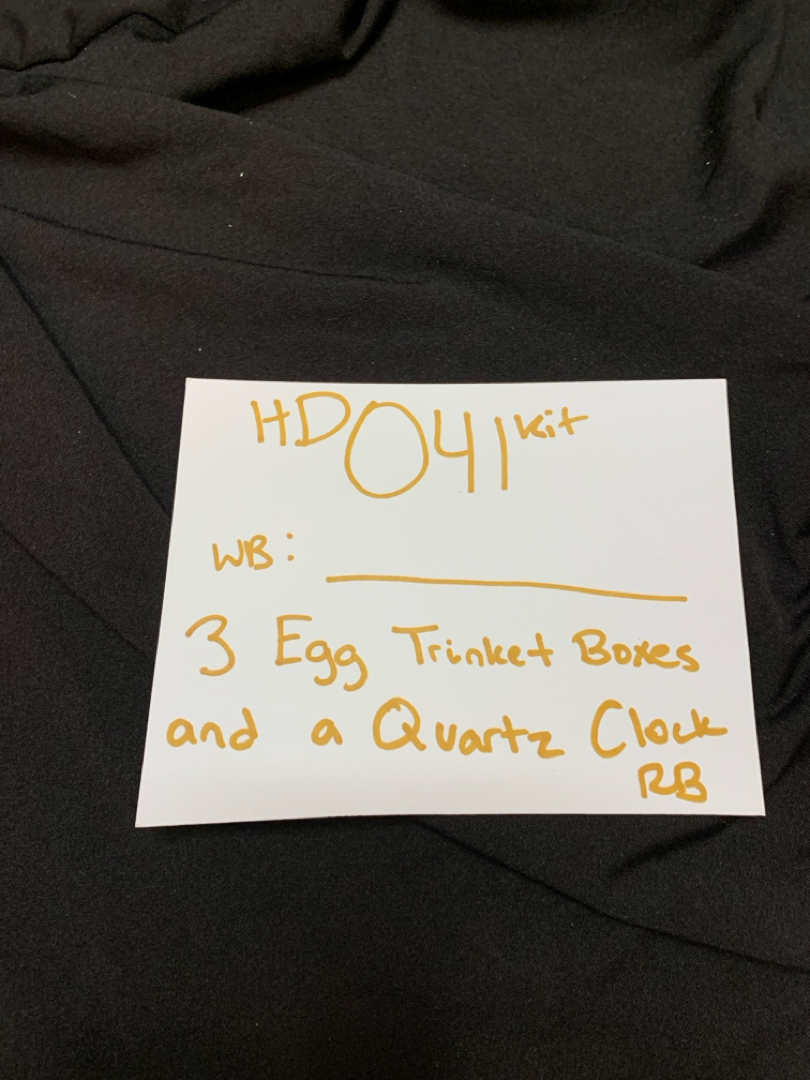 HD 041 Kit
WB: ____________
3 Egg Trinket Boxes
and a Quartz Clock
RB